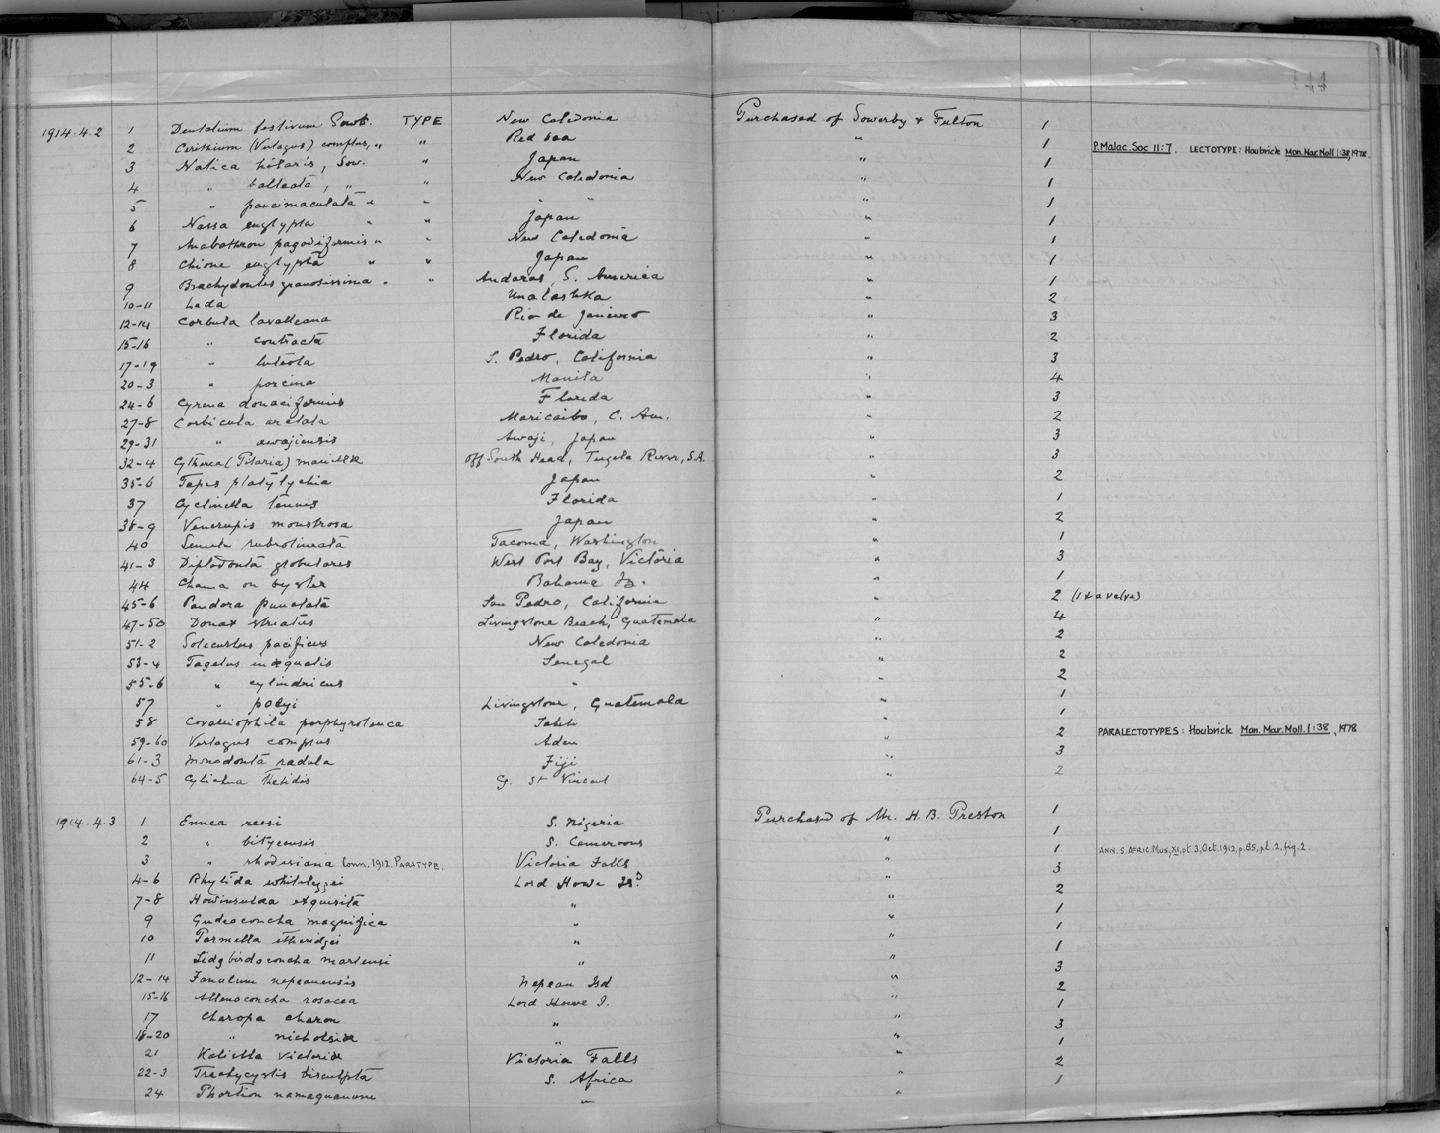 144
1914.4.2 1 Dentalium festivum Sowb. TYPE New Caledonia Purchased of Sowerby & Fulton 1
2 Cerithium (Vertagus) comptus, " " Red Sea " 1 P. Malac. Soc 11:7. LECTOTYPE: Houbrick Mon. Mar. Moll 1:38, 1978.
3 Natica hilaris, Sow. " Japan " 1
4 " balteata, " " New Caledonia " 1
5 " paucimaculata " " " " " 1
6 Nassa euglypta " " Japan " 1
7 Anabathron pagodiformis " " New Caledonia " 1
8 Chione euglypta " " Japan " 1
9 Brachydontes granosissima " " Andaras, S. America " 1
10-11 Leda Unalashka " 2
12-14 Corbula lavalleana Rio de Janeiro " 3
15-16 " contracta Florida " 2
17-19 " luteola S. Pedro, California " 3
20-3 " porcina Manila " 4
24-6 Cyrena donaciformis Florida " 3
27-8 Corbicula arelata Maricaibo, C. Am. " 2
29-31 " awajiensis Awaji, Japan " 3
32-4 Cytherea (Pitaria) off South Head, Tugela River, S.A. " 3
35-6 Tapes platyptycha Japan " 2
37 Cyclinella tenuis Florida " 1
38-9 Venerupis monstrosa Japan " 2
40 Semele rubrolineata Tacoma, Washington " 1
41-3 Diplodonta globulares West Port Bay, Victoria " 3
44 Chama on oyster Bahama Is. " 1
45-6 Pandora punctata San Pedro, California " 2 (1 & a valve)
47-50 Donax striatus Livingstone Beach, Guatemala " 4
51-2 Solecurtus pacificus New Caledonia 2
53-4 Tagelus inæqualis Senegal " 2
55-6 " cylindricus " " 2
57 " polyi Livingstone, Guatemala " 1
58 Coralliophila porphyroleuca Tahiti " 1
59-60 Vertagus comptus Aden " 2 PARALECTOTYPES: Houbrick Mon. Mar. Moll. 1:38, 1978
61-3 Monodonta radula Fiji " 3
64-5 Cylichna Thetidis G. St Vincent " 2
1914.4.3 1 Ennea reesi S. Nigeria Purchased of Mr. H. B. Preston 1
2 " bityensis S. Cameroons " 1
3 " rhodesiana Conn. 1912. PARATYPE. Victoria Falls " 1 ANN. S. AFRIC. MUS, XI, pt. 3, Oct. 1912, p. 85, pl. 2, fig. 2.
4-6 Rhytida whiteleggei Lord Howe Isd " 3
7-8 Howinsulda exquisita " " 2
9 Gudeoconcha magnifica " " 1
10 Parmella etheridgei " " 1
11 Lidgbirdoconcha martensi " " 1
12-14 Fanulum nepeanensis Nepean Isd " 3
15-16 Allenoconcha rosacea Lord Howe I. " 2
17 Charopa charon " " 1
18-20 " nicholsiæ " " 3
21 Kaliella victoriæ Victoria Falls " 1
22-3 Trachycystis bisculpta S. Africa " 2
24 Phortion namaquanum " " 1